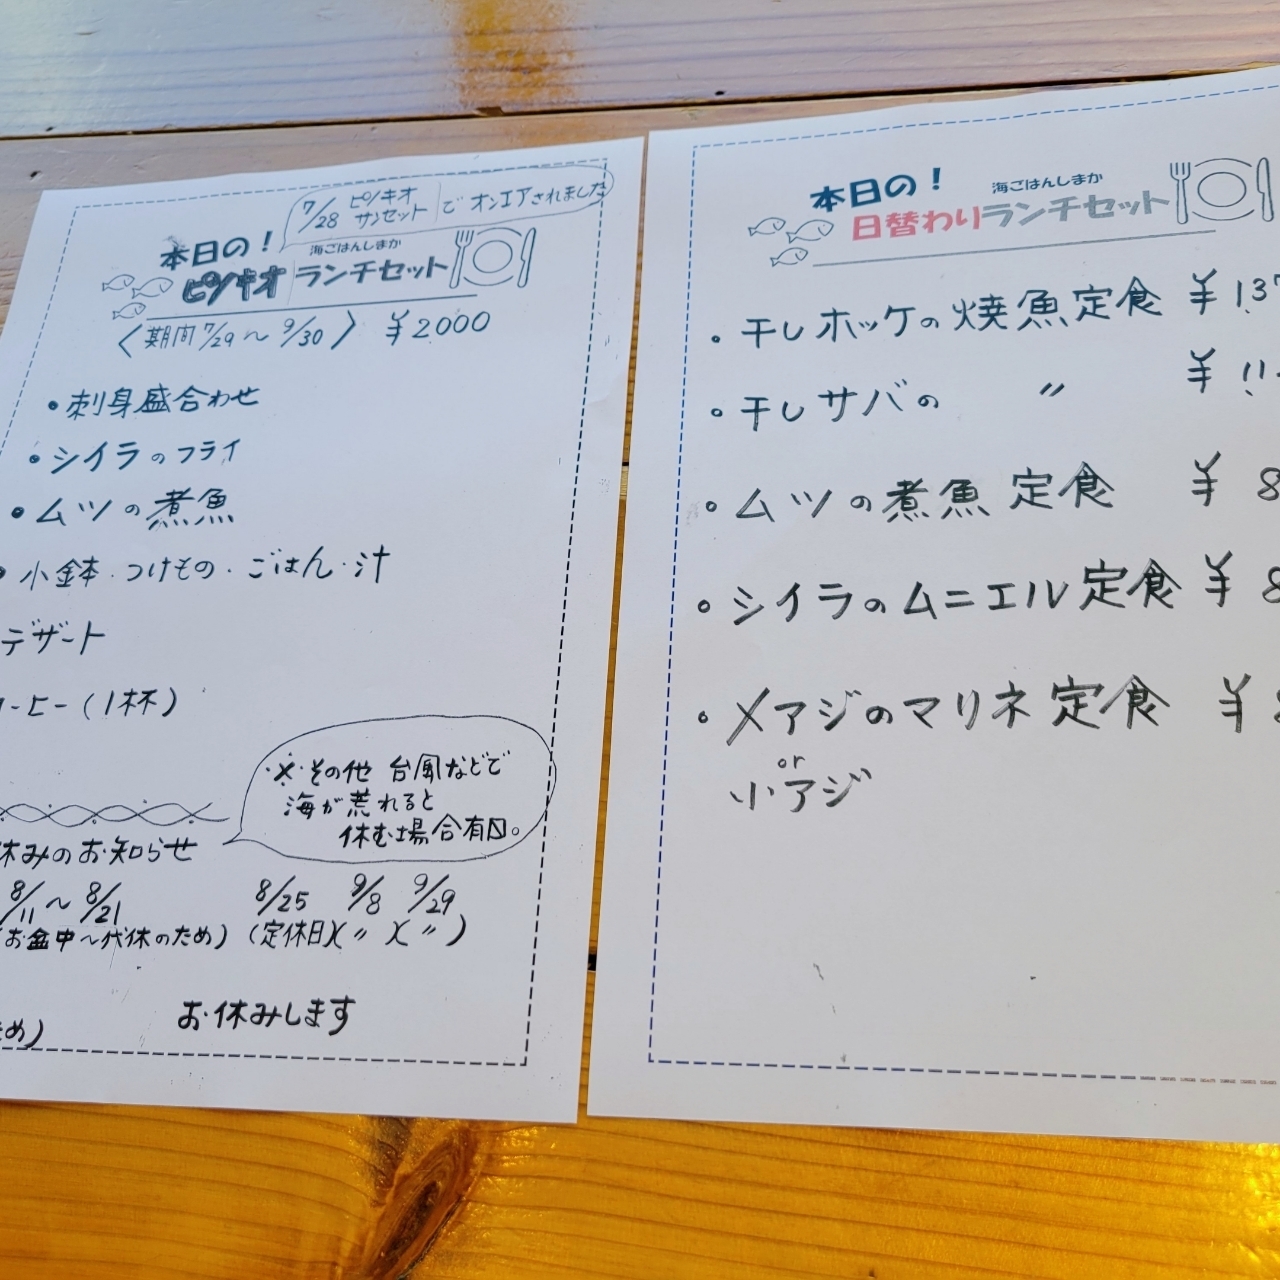 7/28 ピノキオ
サンセット でオンエアされました
本日の！
海ごはんしまか
ピノキオ ランチセット
〈期間7/29〜9/30〉 ¥2000
・刺身盛合わせ
・シイラのフライ
・ムツの煮魚
・小鉢・つけもの・ごはん・汁
デザート
ーヒー(1杯)
※その他 台風などで
海が荒れると
休む場合有り。
休みのお知らせ
8/11〜8/21 8/25 9/8 9/29
(お盆中〜代休のため) (定休日)(〃)(〃)
ため)
お休みします
本日の！
海ごはんしまか
日替わりランチセット
・干しホッケの焼魚定食 ¥137
・干しサバの 〃 ¥11
・ムツの煮魚定食 ¥8
・シイラのムニエル定食 ¥8
・メアジのマリネ定食 ¥
or
小アジ